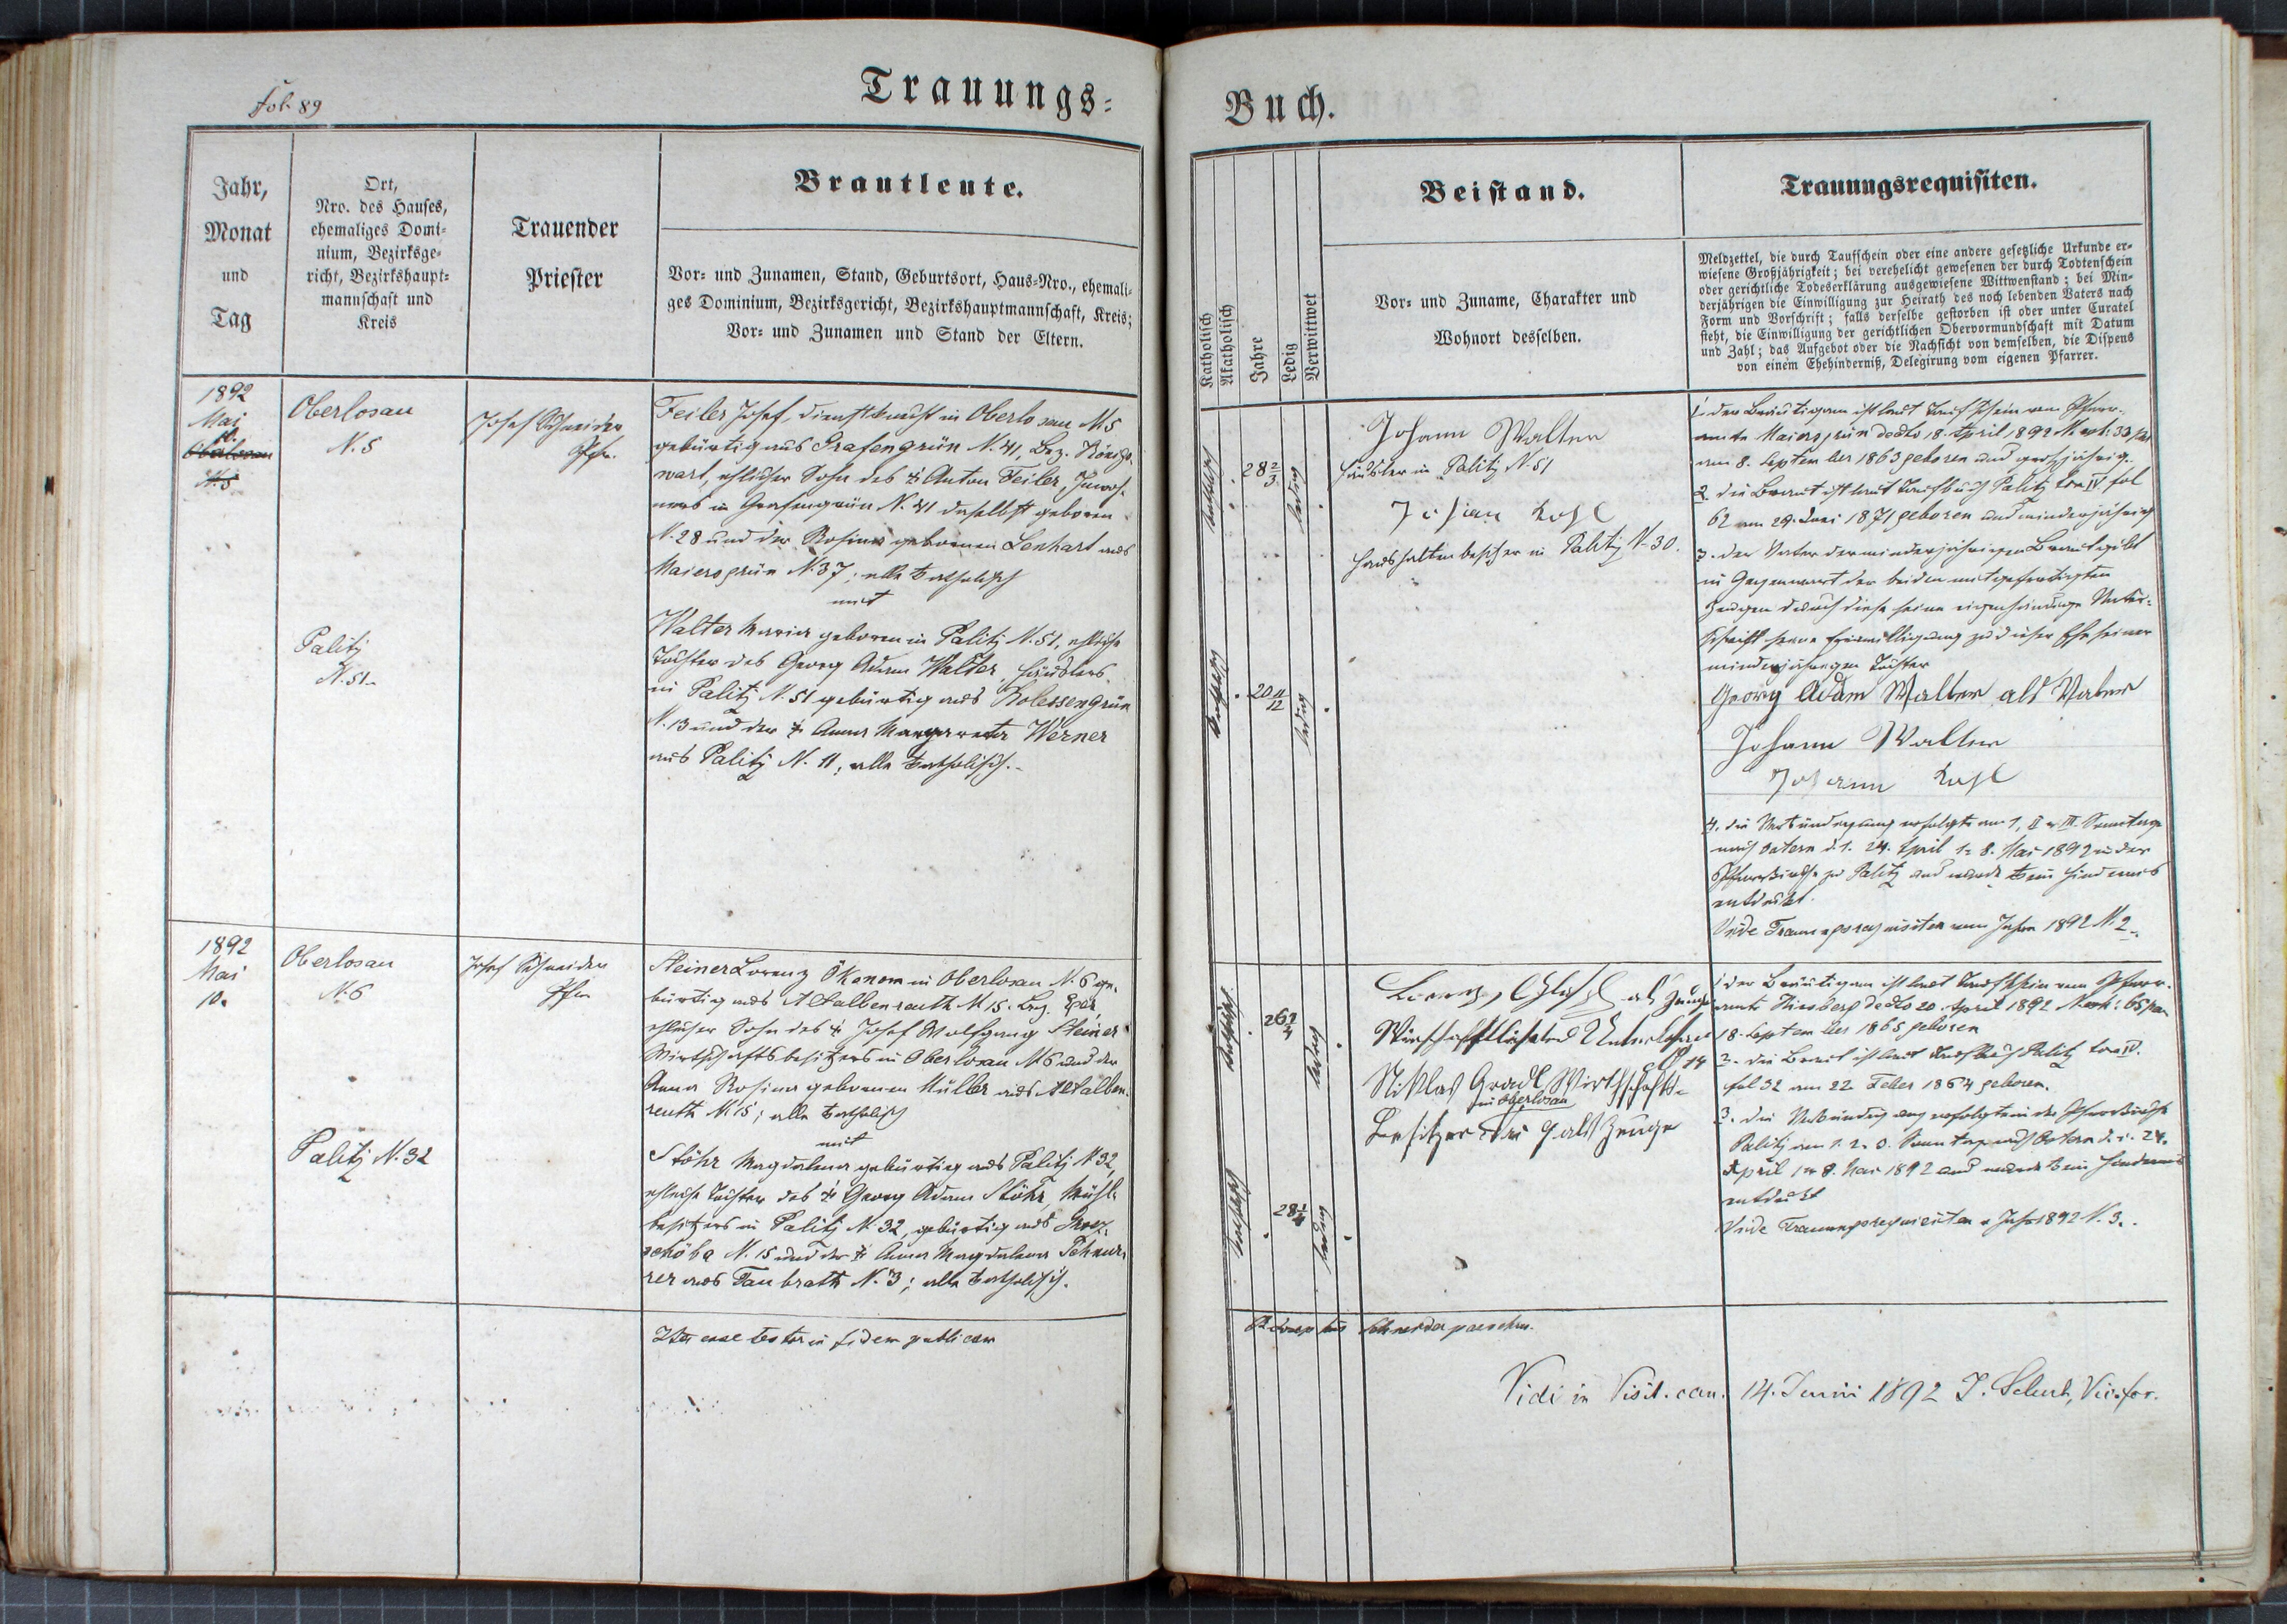 fol. 89
Trauungs=
Jahr,
Monat
und
Tag
Ort,
Nro. des Hauses,
ehemaliges Domi=
nium, Bezirksge=
richt, Bezirkshaupt=
mannschaft und
Kreis
Trauender
Priester
Brautleute.
Vor= und Zunamen, Stand, Geburtsort, Haus=Nro., ehemali=
ges Dominium, Bezirksgericht, Bezirkshauptmannschaft, Kreis;
Vor= und Zunamen und Stand der Eltern.
1892
Mai
10.
Oberlosau
N. 5
Oberlosau
N. 5
Josef Schneider
Pfr.
Feiler Josef, Dienstknecht in Oberlosau N 5
gebürtig aus Grafengrün N. 41, Bez. Königs-
wart, ehlicher Sohn des † Anton Feiler, Inwoh-
ners in Grafengrün N. 41 daselbst geboren
N. 28 und der Rosina gebornen Lenhart aus
Maiersgrün N. 37; alle katholisch
mit
Palitz
N. 51.
Walter Maria geboren in Palitz N. 51, ehliche
Tochter des Georg Adam Walter, Häuslers
in Palitz N. 51 gebürtig aus Rolessengrün
N. 13 und der † Anna Margareta Werner
aus Palitz N. 11; alle katholisch.
1892
Mai
10.
Oberlosau
N. 6
Josef Schneider
Pfr.
Steiner Lorenz Ökonom in Oberlosau N. 6 ge-
bürtig aus Altalbenreuth N 15. Bez. Eger,
ehlicher Sohn des † Josef Wolfgang Steiner
Wirtschaftsbesitzers in Oberlosau N 6 und der
Anna Rosina gebornen Müller aus Altalben-
reuth N. 15; alle katholisch
mit
Palitz N. 32
Stöhr Magdalena gebürtig aus Palitz N 32,
ehliche Tochter des † Georg Adam Stöhr, Mühl-
besitzers in Palitz N. 32, gebürtig aus
N. 15 und der † Anna Magdalena Schnur-
rer aus Taubrath N. 3; alle katholisch.
Ita esse testor in fidem publicam
Buch.
Katholisch
Akatholisch
Jahre
Ledig
Verwittwet
Beistand.
Vor= und Zuname, Charakter und
Wohnort desselben.
Trauungsrequisiten.
Meldzettel, die durch Taufschein oder eine andere gesetzliche Urkunde er=
wiesene Großjährigkeit; bei verehelicht gewesenen der durch Todtenschein
oder gerichtliche Todeserklärung ausgewiesene Wittwenstand; bei Min=
derjährigen die Einwilligung zur Heirath des noch lebenden Vaters nach
Form und Vorschrift; falls derselbe gestorben ist oder unter Curatel
steht, die Einwilligung der gerichtlichen Obervormundschaft mit Datum
und Zahl; das Aufgebot oder die Nachsicht von demselben, die Dispens
von einem Ehehinderniß, Delegirung vom eigenen Pfarrer.
katholisch
28 2/3
ledig
Johann Walter
Häusler in Palitz N 51
Johann
besitzer in Palitz N 30.
katholisch
20 11/12
ledig
1. der Bräutigam ist laut Taufschein vom Pfarr-
amte Maiersgrün ddto 18. April 1892
am 8. September 1863 geboren und großjährig.
2. die Braut ist laut Taufbuch Palitz tom IV. fol
62 am 29. Juni 1871 geboren und minderjährig
3. der Vater der minderjährigen Braut gibt
in Gegenwart der beiden mitgefertigten
Zeugen durch diese seine eigenhändige Unter-
schrift seine Einwilligung zu dieser Ehe seiner
minderjährigen Tochter
Georg Adam Walter als Vater
Johann Walter
Johann
4. die Verkündigung erfolgte am I, II u III. Sonntage
nach Ostern d. i. 24. April 1 u 8. Mai 1892 in der
Pfarrkirche zu Palitz und wurde kein Hindernis
entdeckt.
Vide Trauungsrequisiten vom Jahre 1892 N. 2.
katholisch
26 3/4
ledig
Lorenz als Zeuge
Niklas Gradl Wirthschafts-
in Oberlosau
Besitzer als Zeuge
katholisch
28 1/4
ledig
1 der Bräutigam ist laut Taufschein vom Pfarr-
amte ddto 20. April 1892
18. September 1865 geboren
2. die Braut ist laut Taufbuch Palitz tom IV.
fol 32 am 22 Feber 1864 geboren.
3. die Verkündigung erfolgte in der Pfarrkirche
Palitz am 1. 2. 3. Sonntag nach Ostern d. i. 24.
April 1 u 8. Mai 1892 und wurde kein Hindernis
entdeckt
Vide Trauungsrequisiten v Jahr 1892 N. 3.
Schneider parochus.
Vidi in Visit. can. 14. Junii 1892